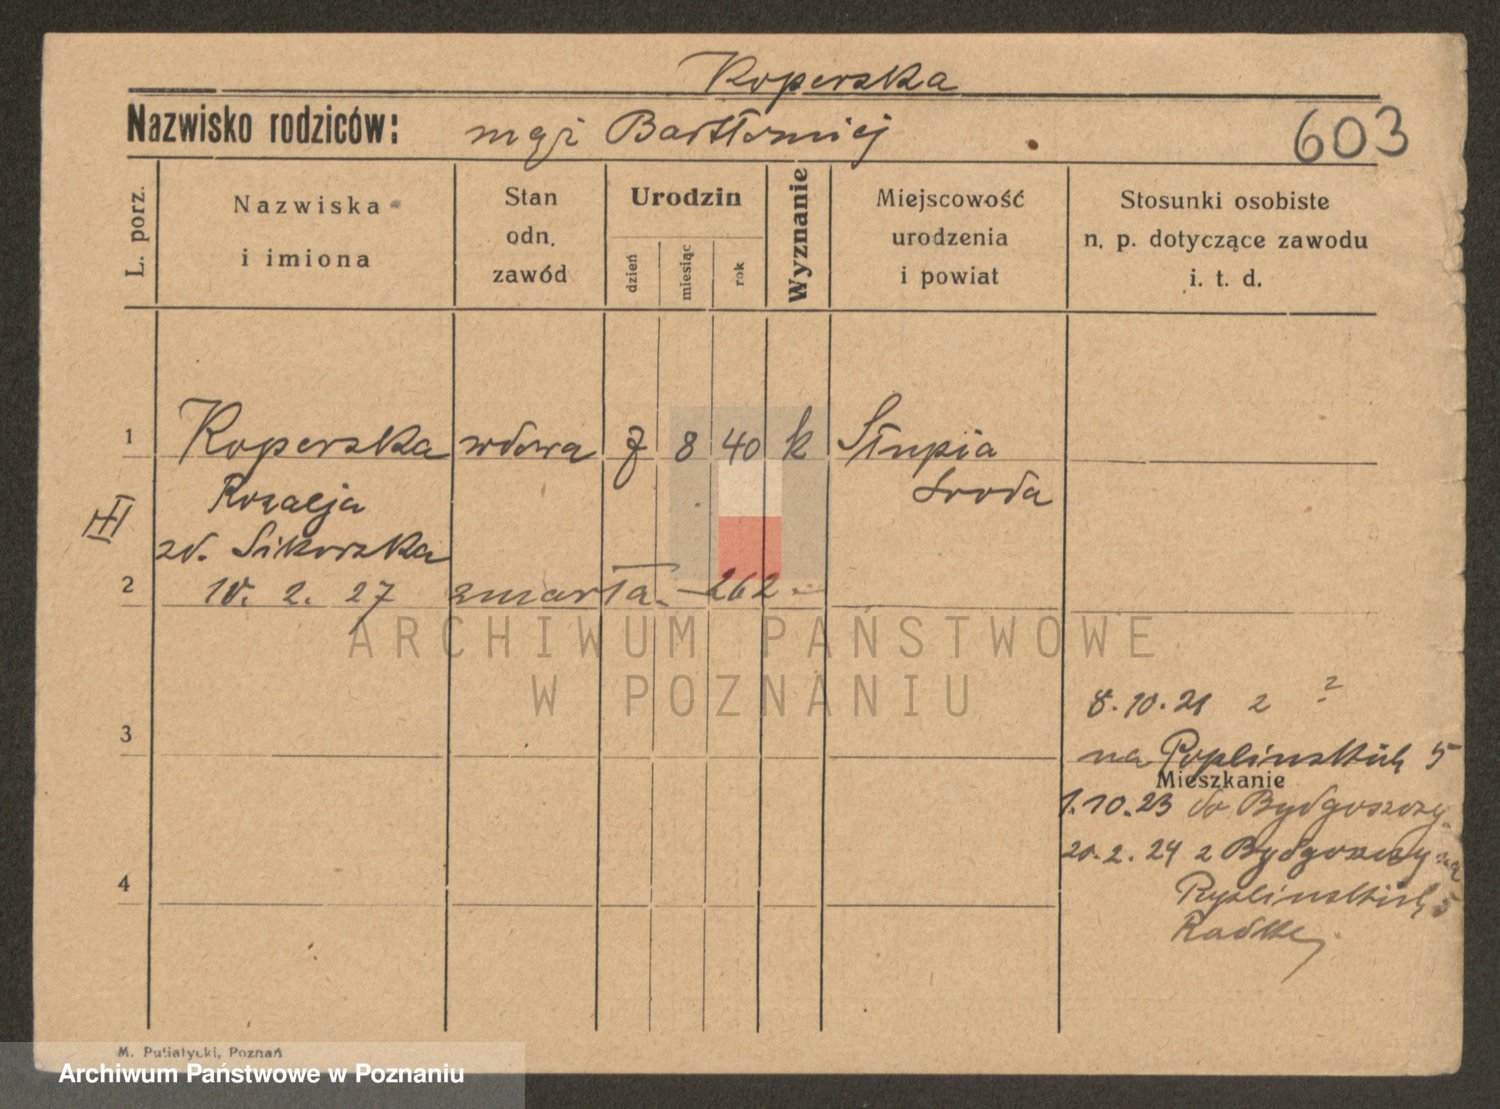 Koperska
Nazwisko rodziców: mąż Bartłomiej
603
L. porz.
Nazwiska
i imiona
Stan
odn.
zawód
Urodzin
dzień
miesiąc
rok
Wyznanie
Miejscowość
urodzenia
i powiat
Stosunki osobiste
n. p. dotyczące zawodu
i. t. d.
1 Koperska wdowa 7 8 40 k Słupia
Rozalja Sroda
zd. Sikorska
2 10. 2. 27 zmarła. - 262.
ARCHIWUM PAŃSTWOWE
W POZNANIU
8.10.21 z ?
3 na Poplinskich 5
Mieszkanie
1.10.23 do Bydgoszczy.
20.2.24 z Bydgoszczy na
4 Poplinskich 5
M. Putiatycki, Poznań
Archiwum Państwowe w Poznaniu